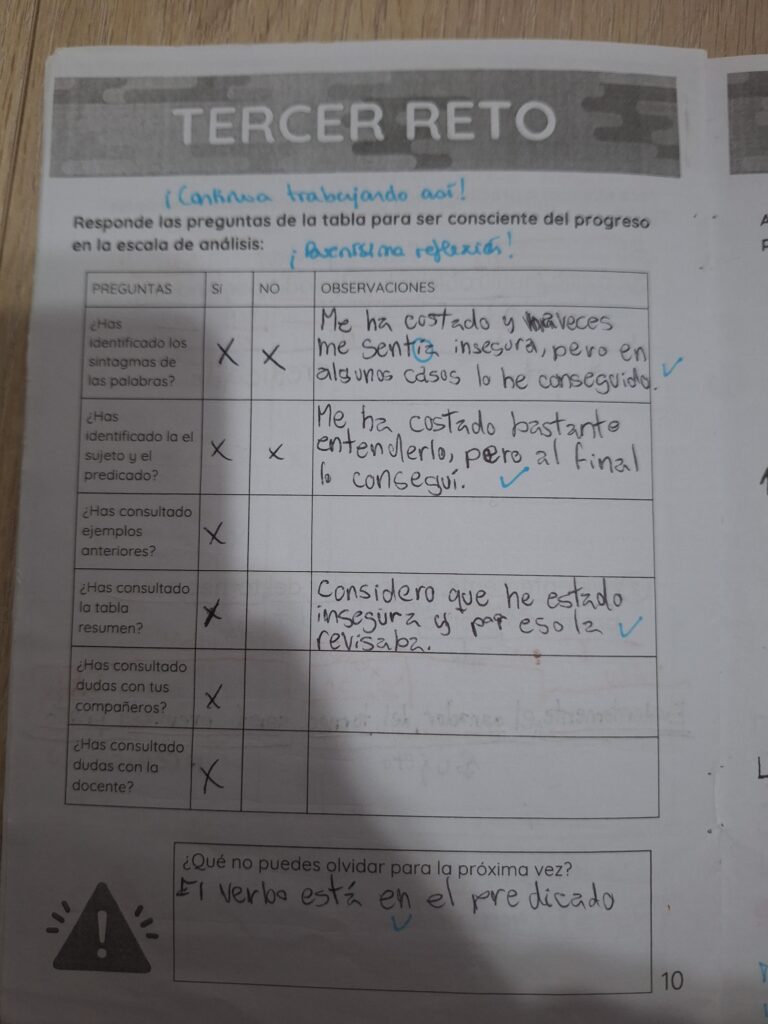 TERCER RETO
¡Continua trabajando así!
Responde las preguntas de la tabla para ser consciente del progreso
en la escala de análisis:
¡Buenísima reflexión!
PREGUNTAS SI NO OBSERVACIONES
¿Has
identificado los
sintagmas de
las palabras?
X X
Me ha costado y haveces
me sentía insegura, pero en
algunos casos lo he conseguido.
¿Has
identificado la el
sujeto y el
predicado?
X X
Me ha costado bastante
entenderlo, pero al final
lo conseguí.
¿Has consultado
ejemplos
anteriores?
X
¿Has consultado
la tabla
resumen?
X
Considero que he estado
insegura y por eso la
revisaba.
¿Has consultado
dudas con tus
compañeros?
X
¿Has consultado
dudas con la
docente?
X
¿Qué no puedes olvidar para la próxima vez?
El verbo está en el predicado
10